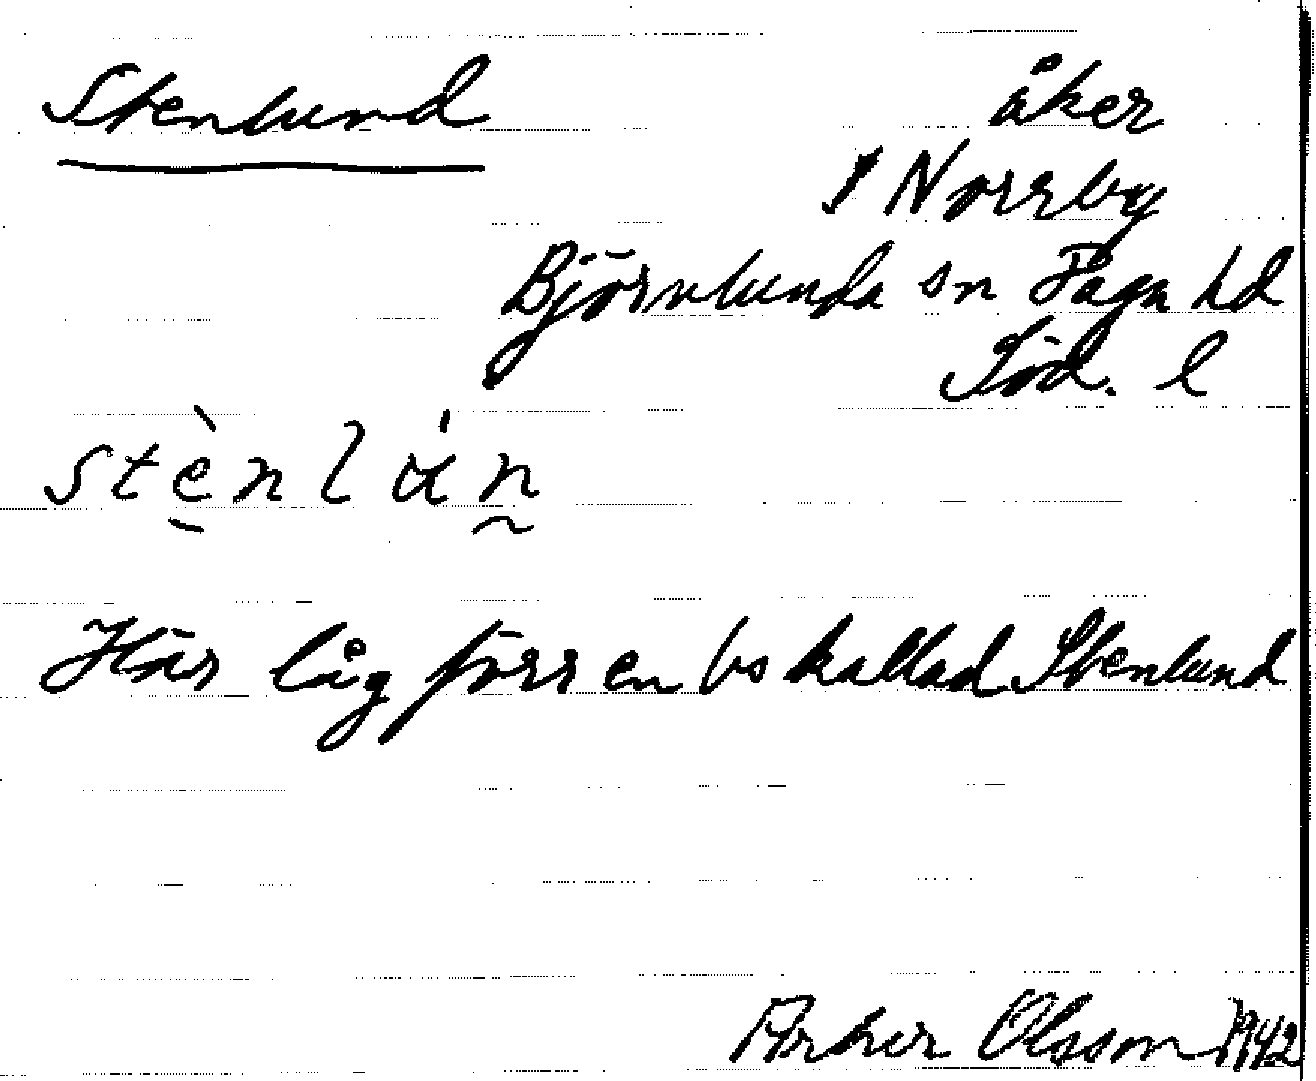 Stenlund
åker
1 Norrby
Björnlunda sn Daga hd
Söd. l
stènlán
Här låg förr en bs kallad Stenlund
Olsson 1942